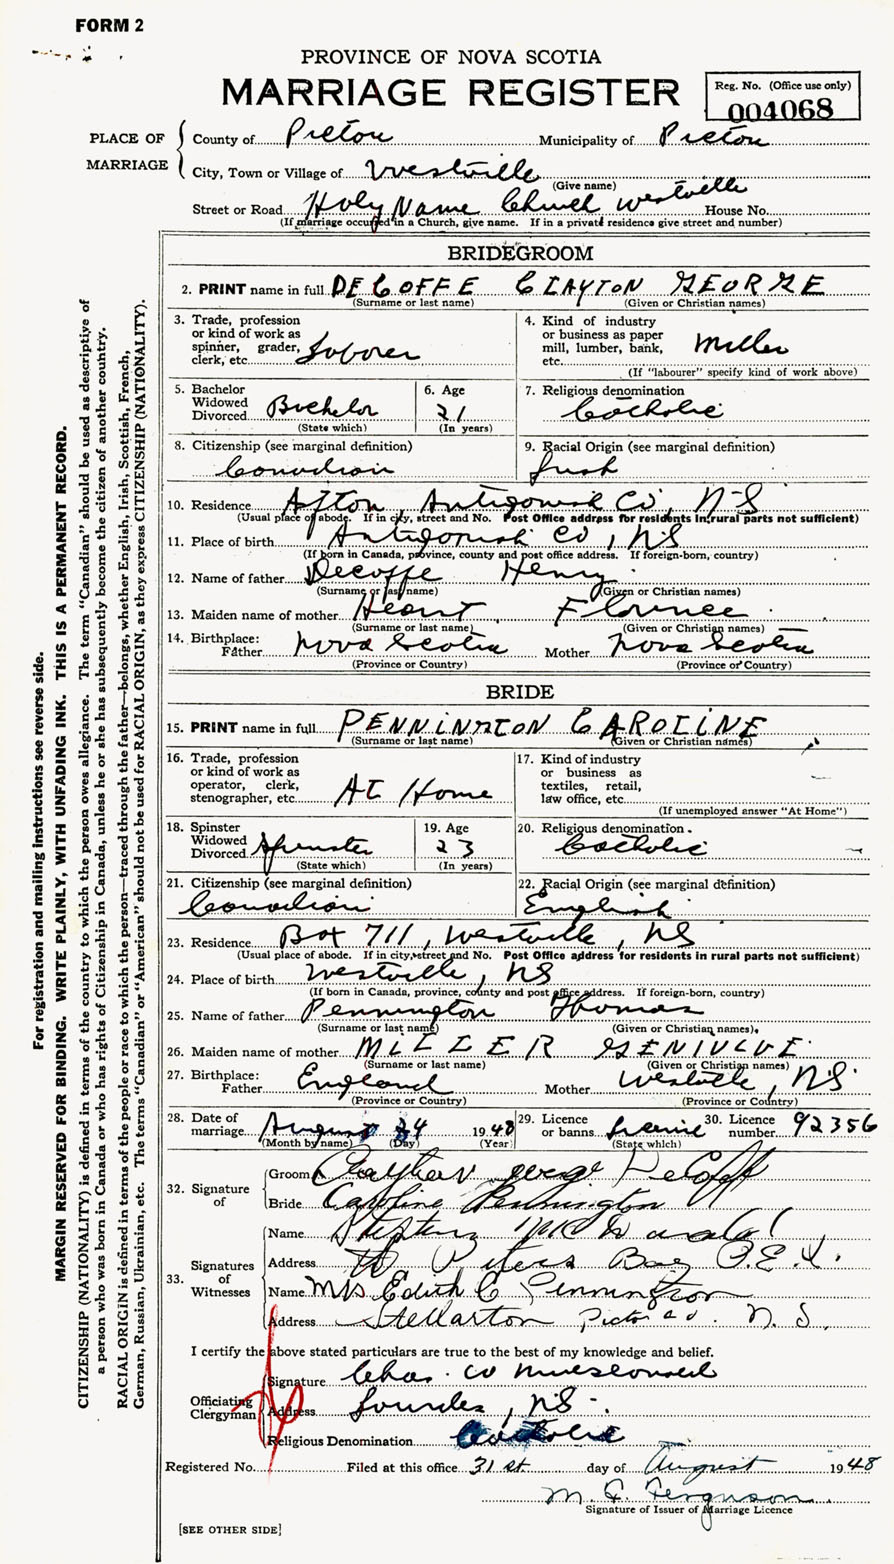 FORM 2
PROVINCE OF NOVA SCOTIA
MARRIAGE REGISTER
Reg. No. (Office use only)
004068
PLACE OF MARRIAGE
County of Pictou Municipality of Pictou
City, Town or Village of Westville
(Give name)
Street or Road Holy Name Church Westville House No.
(If marriage occurred in a Church, give name. If in a private residence give street and number)
BRIDEGROOM
2. PRINT name in full DECOFFE CLAYTON GEORGE
(Surname or last name) (Given or Christian names)
3. Trade, profession or kind of work as spinner, grader, clerk, etc. Laborer
4. Kind of industry or business as paper mill, lumber, bank, etc. Miller
(If "labourer" specify kind of work above)
5. Bachelor Widowed Divorced Bachelor
(State which)
6. Age 21
(In years)
7. Religious denomination Catholic
8. Citizenship (see marginal definition) Canadian
9. Racial Origin (see marginal definition) Irish
10. Residence Afton Antigonish Co, N-S
(Usual place of abode. If in city, street and No. Post Office address for residents in rural parts not sufficient)
11. Place of birth Antigonish Co, NS
(If born in Canada, province, county and post office address. If foreign-born, country)
12. Name of father Decoffe Henry
(Surname or last name) (Given or Christian names)
13. Maiden name of mother Florence
(Surname or last name) (Given or Christian names)
14. Birthplace: Father Nova Scotia Mother Nova Scotia
(Province or Country) (Province or Country)
BRIDE
15. PRINT name in full PENNINGTON CAROLINE
(Surname or last name) (Given or Christian names)
16. Trade, profession or kind of work as operator, clerk, stenographer, etc. At Home
17. Kind of industry or business as textiles, retail, law office, etc.
(If unemployed answer "At Home")
18. Spinster Widowed Divorced Spinster
(State which)
19. Age 23
(In years)
20. Religious denomination Catholic
21. Citizenship (see marginal definition) Canadian
22. Racial Origin (see marginal definition) English
23. Residence Box 711, Westville, NS
(Usual place of abode. If in city, street and No. Post Office address for residents in rural parts not sufficient)
24. Place of birth Westville, NS
(If born in Canada, province, county and post office address. If foreign-born, country)
25. Name of father Pennington Thomas
(Surname or last name) (Given or Christian names)
26. Maiden name of mother MILLER GENIVLVE
(Surname or last name) (Given or Christian names)
27. Birthplace: Father England Mother Westville, NS
(Province or Country) (Province or Country)
28. Date of marriage August 24 1948
(Month by name) (Day) (Year)
29. Licence or banns License
(State which)
30. Licence number 92356
32. Signature of
Groom Clayton George DeCoff
Bride Caroline Pennington
33. Signatures of Witnesses
Name Stephen McDonald
Address St Peters Bay P.E.I.
Name Mrs Edith C Pennington
Address Stellarton Pictou Co. N.S.
I certify the above stated particulars are true to the best of my knowledge and belief.
Officiating Clergyman
Signature Chas. W
Address Lourdes, NS.
Religious Denomination Catholic
Registered No. Filed at this office 31st. day of August 1948
M. F. Ferguson
Signature of Issuer of Marriage Licence
[SEE OTHER SIDE]
For registration and mailing instructions see reverse side.
MARGIN RESERVED FOR BINDING. WRITE PLAINLY, WITH UNFADING INK. THIS IS A PERMANENT RECORD.
CITIZENSHIP (NATIONALITY) is defined in terms of the country to which the person owes allegiance. The term "Canadian" should be used as descriptive of
a person who was born in Canada or who has rights of Citizenship in Canada, unless he or she has subsequently become the citizen of another country.
RACIAL ORIGIN is defined in terms of the people or race to which the person—traced through the father—belongs, whether English, Irish, Scottish, French,
German, Russian, Ukrainian, etc. The terms "Canadian" or "American" should not be used for RACIAL ORIGIN, as they express CITIZENSHIP (NATIONALITY).